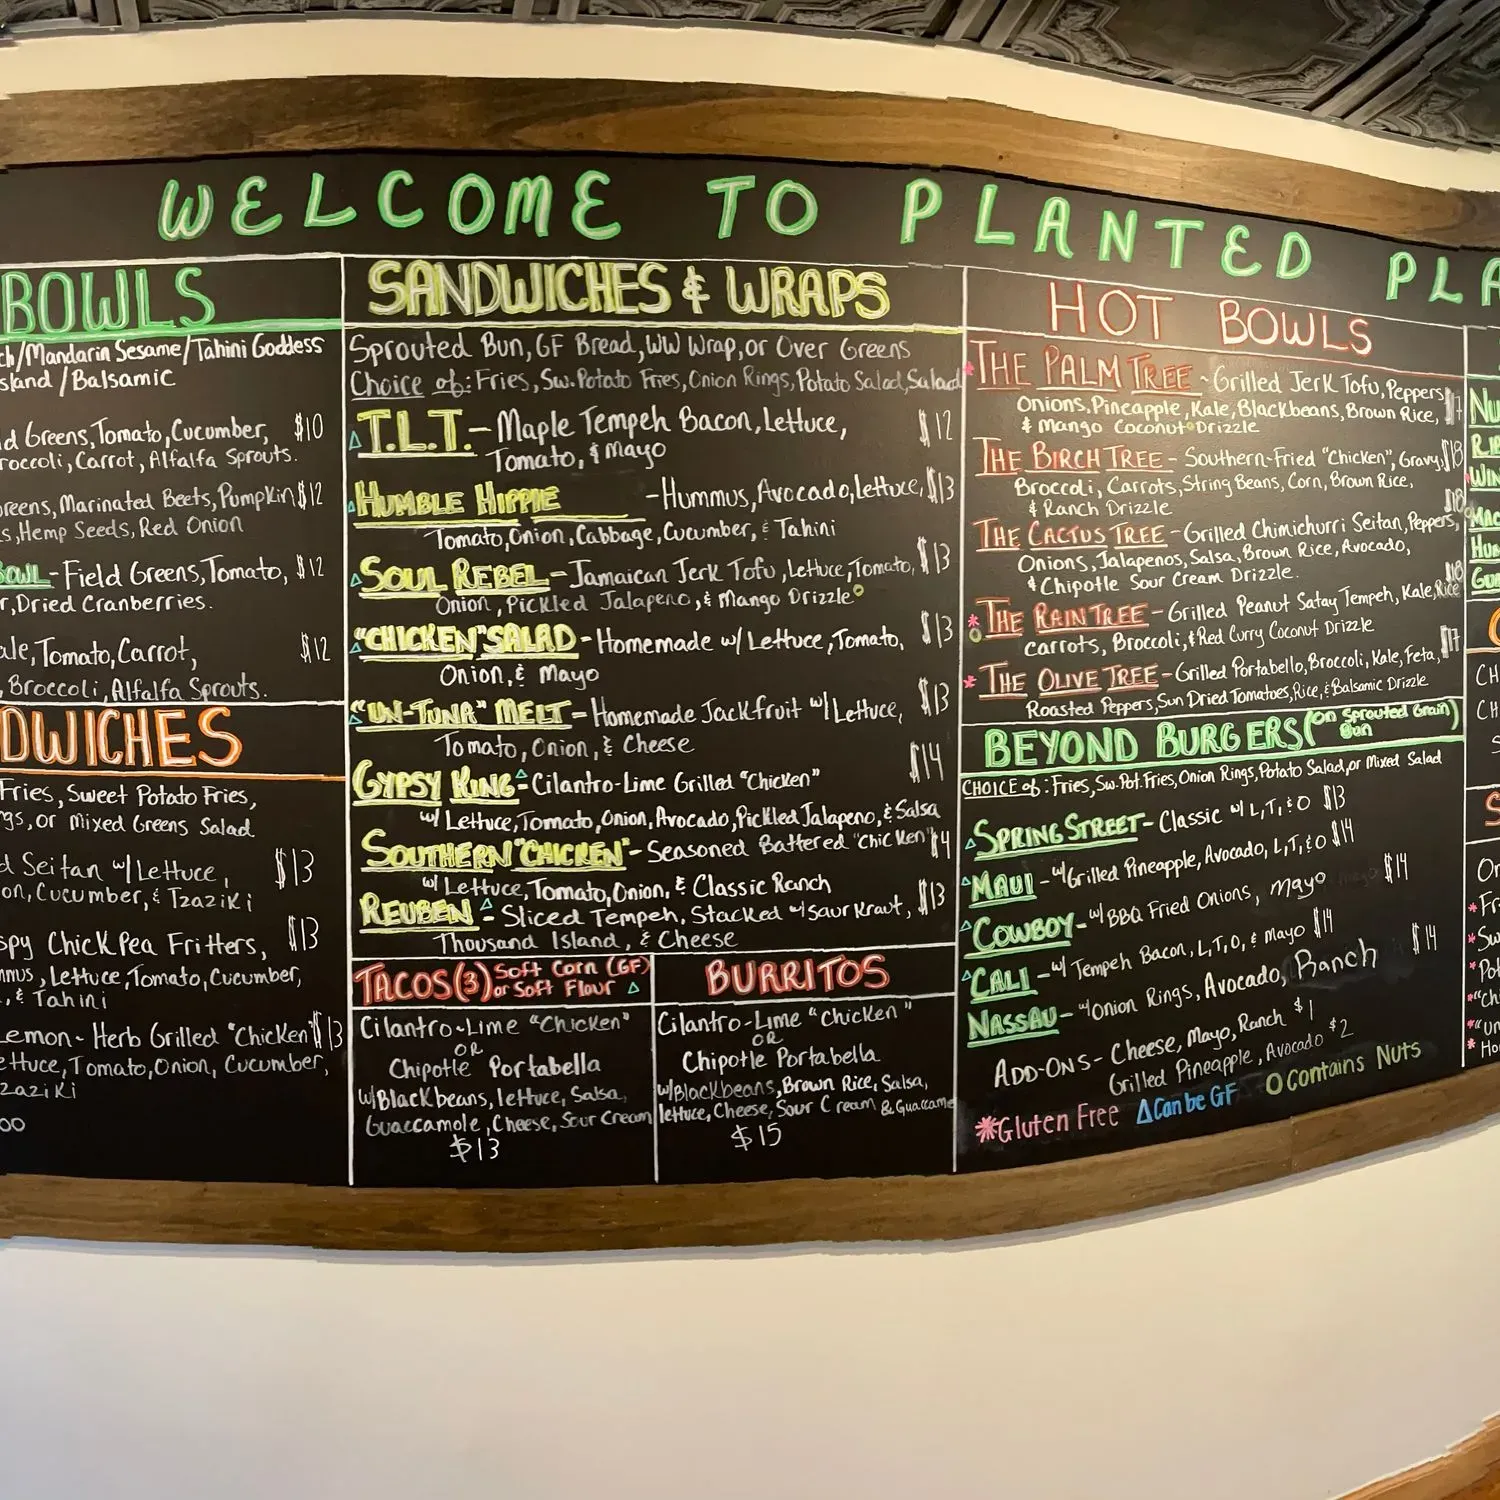 WELCOME TO PLANTED PLA
BOWLS
ch/Mandarin Sesame/Tahini Goddess
sland/Balsamic
d Greens, Tomato, Cucumber, $10
roccoli, Carrot, Alfalfa Sprouts.
reens, Marinated Beets, Pumpkin $12
s, Hemp Seeds, Red Onion
BOWL - Field Greens, Tomato, $12
r, Dried Cranberries.
ale, Tomato, Carrot, $12
, Broccoli, Alfalfa Sprouts.
DWICHES
Fries, Sweet Potato Fries,
gs, or Mixed Greens Salad
d Seitan w/ Lettuce, $13
on, Cucumber, & Tzaziki
spy Chick Pea Fritters, $13
mmus, Lettuce, Tomato, Cucumber,
, & Tahini
Lemon-Herb Grilled "Chicken" $13
ettuce, Tomato, Onion, Cucumber,
zaziki
00
SANDWICHES & WRAPS
Sprouted Bun, GF Bread, WW Wrap, or Over Greens
Choice of: Fries, Sw. Potato Fries, Onion Rings, Potato Salad, Salad
△ T.L.T. - Maple Tempeh Bacon, Lettuce, $12
Tomato, & Mayo
△ HUMBLE HIPPIE - Hummus, Avocado, lettuce, $13
Tomato, Onion, Cabbage, Cucumber, & Tahini
△ SOUL REBEL - Jamaican Jerk Tofu, Lettuce, Tomato, $13
Onion, Pickled Jalapeno, & Mango Drizzle O
△ "CHICKEN" SALAD - Homemade w/ Lettuce, Tomato, $13
Onion, & Mayo
△ "UN-TUNA" MELT - Homemade Jackfruit w/ Lettuce, $13
Tomato, Onion, & Cheese
GYPSY KING △ - Cilantro-Lime Grilled "Chicken" $14
w/ Lettuce, Tomato, Onion, Avocado, Pickled Jalapeno, & Salsa
SOUTHERN "CHICKEN" - Seasoned Battered "Chicken" $14
w/ Lettuce, Tomato, Onion, & Classic Ranch
REUBEN △ - Sliced Tempeh, Stacked w/ Saurkraut, $13
Thousand Island, & Cheese
TACOS (3) Soft Corn (GF)
or Soft Flour △
Cilantro-Lime "Chicken"
OR
Chipotle Portabella
w/ Blackbeans, lettuce, Salsa,
Guaccamole, Cheese, Sour Cream
$13
BURRITOS
Cilantro-Lime "Chicken"
OR
Chipotle Portabella
w/ Blackbeans, Brown Rice, Salsa,
lettuce, Cheese, Sour Cream & Guaccame
$15
HOT BOWLS
* THE PALM TREE - Grilled Jerk Tofu, Peppers,
Onions, Pineapple, Kale, Blackbeans, Brown Rice,
& Mango Coconut O Drizzle
THE BIRCH TREE - Southern-Fried "Chicken", Gravy, $18
Broccoli, Carrots, String Beans, Corn, Brown Rice,
& Ranch Drizzle
THE CACTUS TREE - Grilled Chimichurri Seitan, Peppers, $18
Onions, Jalapenos, Salsa, Brown Rice, Avocado,
& Chipotle Sour Cream Drizzle.
* O THE RAIN TREE - Grilled Peanut Satay Tempeh, Kale, Rice $18
Carrots, Broccoli, & Red Curry Coconut Drizzle
* THE OLIVE TREE - Grilled Portabello, Broccoli, Kale, Feta, $17
Roasted Peppers, Sun Dried Tomatoes, Rice, & Balsamic Drizzle
BEYOND BURGERS (on Sprouted Grain
Bun)
CHOICE of: Fries, Sw. Pot. Fries, Onion Rings, Potato Salad, or Mixed Salad
△ SPRING STREET - Classic w/ L, T, & O $13
△ MAUI - w/ Grilled Pineapple, Avocado, L, T, & O $14
△ COWBOY - w/ BBQ Fried Onions, Mayo $14
△ CALI - w/ Tempeh Bacon, L, T, O, & Mayo $14
NASSAU - w/ Onion Rings, Avocado, Ranch $14
ADD-ONS - Cheese, Mayo, Ranch $1
Grilled Pineapple, Avocado $2
* Gluten Free △ Can be GF O Contains Nuts